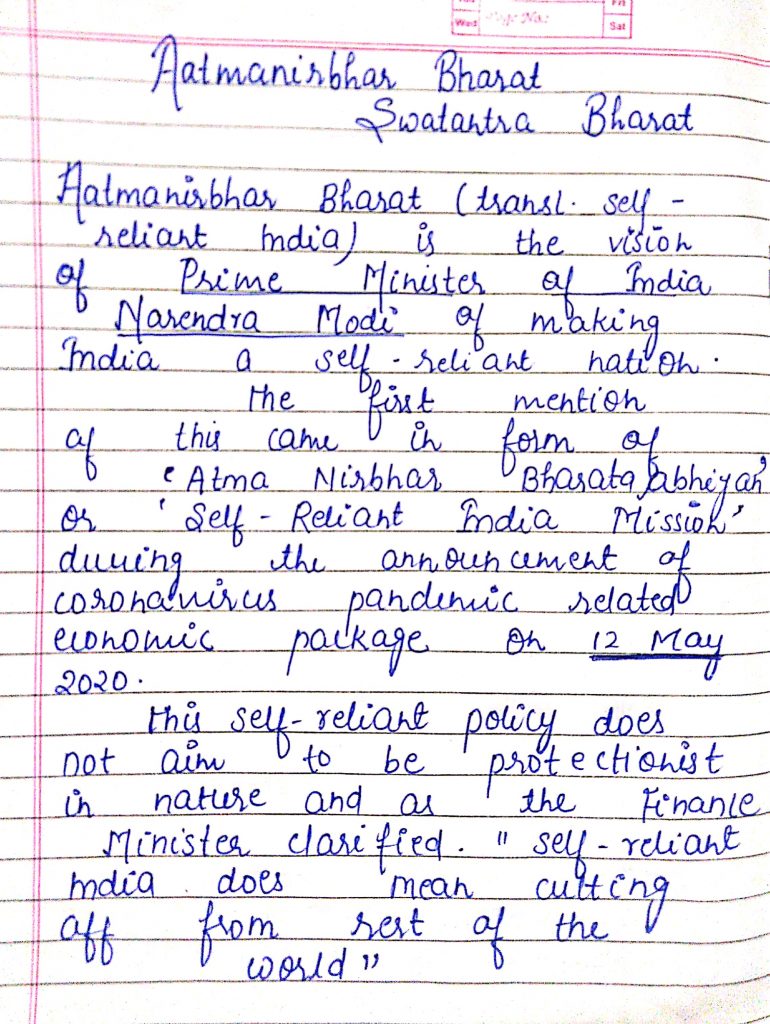 Fri
Wed Page No.: Sat
Aatmanirbhar Bharat
Swatantra Bharat
Aatmanirbhar Bharat (transl. self-
reliant India) is the vision
of Prime Minister of India
Narendra Modi of making
India a self-reliant nation.
The first mention
of this came in form of
'Atma Nirbhar Bharata abhiyan'
or 'Self-Reliant India Mission'
during the announcement of
coronavirus pandemic related
economic package on 12 May
2020.
This self-reliant policy does
not aim to be protectionist
in nature and as the Finance
Minister clarified. "self-reliant
India does mean cutting
off from rest of the
world"